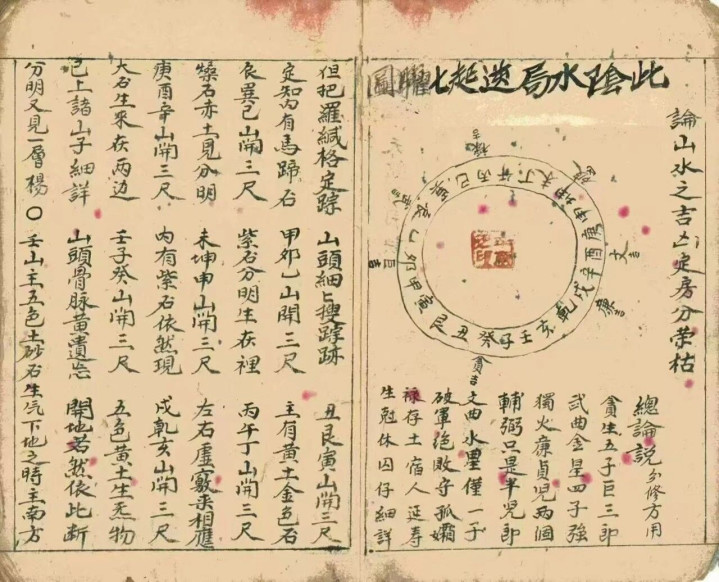 此陰水局逆起七曜圖
論山水之吉凶定房分荣枯
壬子癸丑艮寅甲卯乙辰巽巳丙午丁未坤申庚酉辛戌乾亥
貪吉
巨吉
文吉
廉吉
總論說 另修方用
貪生五子巨三郎
武曲金星四子強
獨火廉貞児兩個
輔弼只是半児郎
文曲水星僅一子
破軍絕敗守孤孀
祿存土宿人延寿
生尅休囚仔細詳
但把羅緘格定踪 山頭細占搜踪跡 丑艮寅山開三尺
定知內有馬蹄石 甲卯乙山開三尺 主有黃土金色石
辰巽巳山開三尺 紫石分明生在裡 丙午丁山開三尺
𥖎石赤土見分明 未坤申山開三尺 左右虛竅来相應
庚酉辛山開三尺 内有紫石依然現 戌乾亥山開三尺
大石生来在两边 壬子癸山開三尺 五色黃土生炁物
已上諸山子細詳 山頭骨脉黃遺忘 開地若然依此断
分明又見一層楊 〇 壬山主五色土砂石生气下地之時主南方